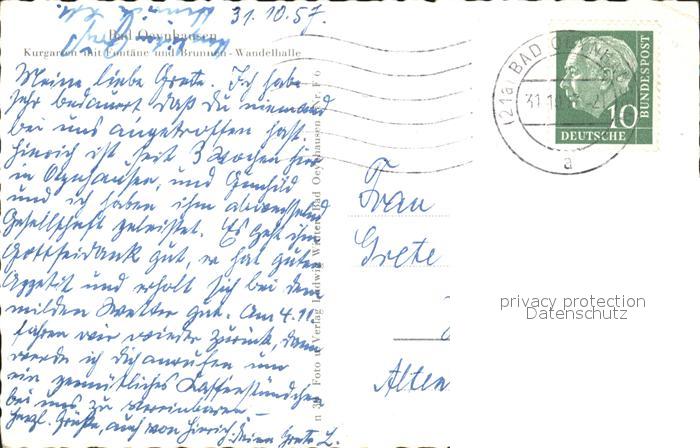 31.10.57.
Bad Oeynhausen
Kurgarten mit Fontäne und Brunnen - Wandelhalle
Meine liebe Grete. Ich habe
sehr bedauert daß du niemand
bei uns angetroffen hast.
Hinrich ist seit 3 Wochen hier
in Oeynhausen, und Gunhild
und ich haben ihm abwechselnd
Gesellschaft geleistet. Es geht ihm
Gottseidank gut, er hat guten
Appetit und erholt sich bei dem
milden Wetter gut. Am 4.11.
fahren wir wieder zurück, dann
werde ich dich anrufen um
ein gemütliches Kaffeestündchen
bei uns zu vereinbaren. -
Herzl. Grüße, auch von Hinrich. Deine Grete L.
Foto u. Verlag Ludwig Walter, Bad Oeynhausen
(21a) BAD OEYNH
31.10
a
10
DEUTSCHE
BUNDESPOST
Frau
Grete
Alten
privacy protection
Datenschutz